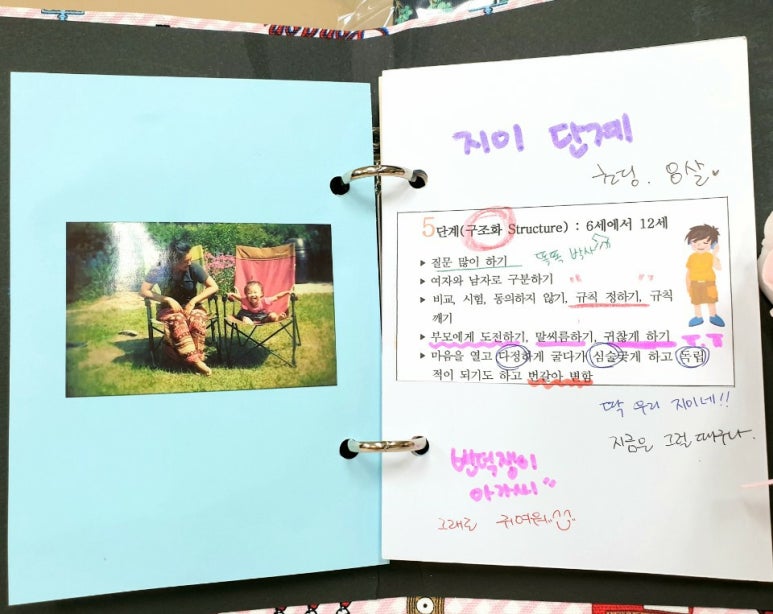 지이 단계
현딩. 8살
5단계(구조화 Structure) : 6세에서 12세
똑똑 박사
▸ 질문 많이 하기
▸ 여자와 남자로 구분하기
▸ 비교, 시험, 동의하지 않기, 규칙 정하기, 규칙
깨기
▸ 부모에게 도전하기, 말씨름하기, 귀찮게 하기
▸ 마음을 열고 다정하게 굴다가 심술궂게 하고 독립
적이 되기도 하고 번갈아 변함
딱 우리 지이네!!
지금은 그럴 때구나.
변덕쟁이
아가씨
그래도 귀여워..